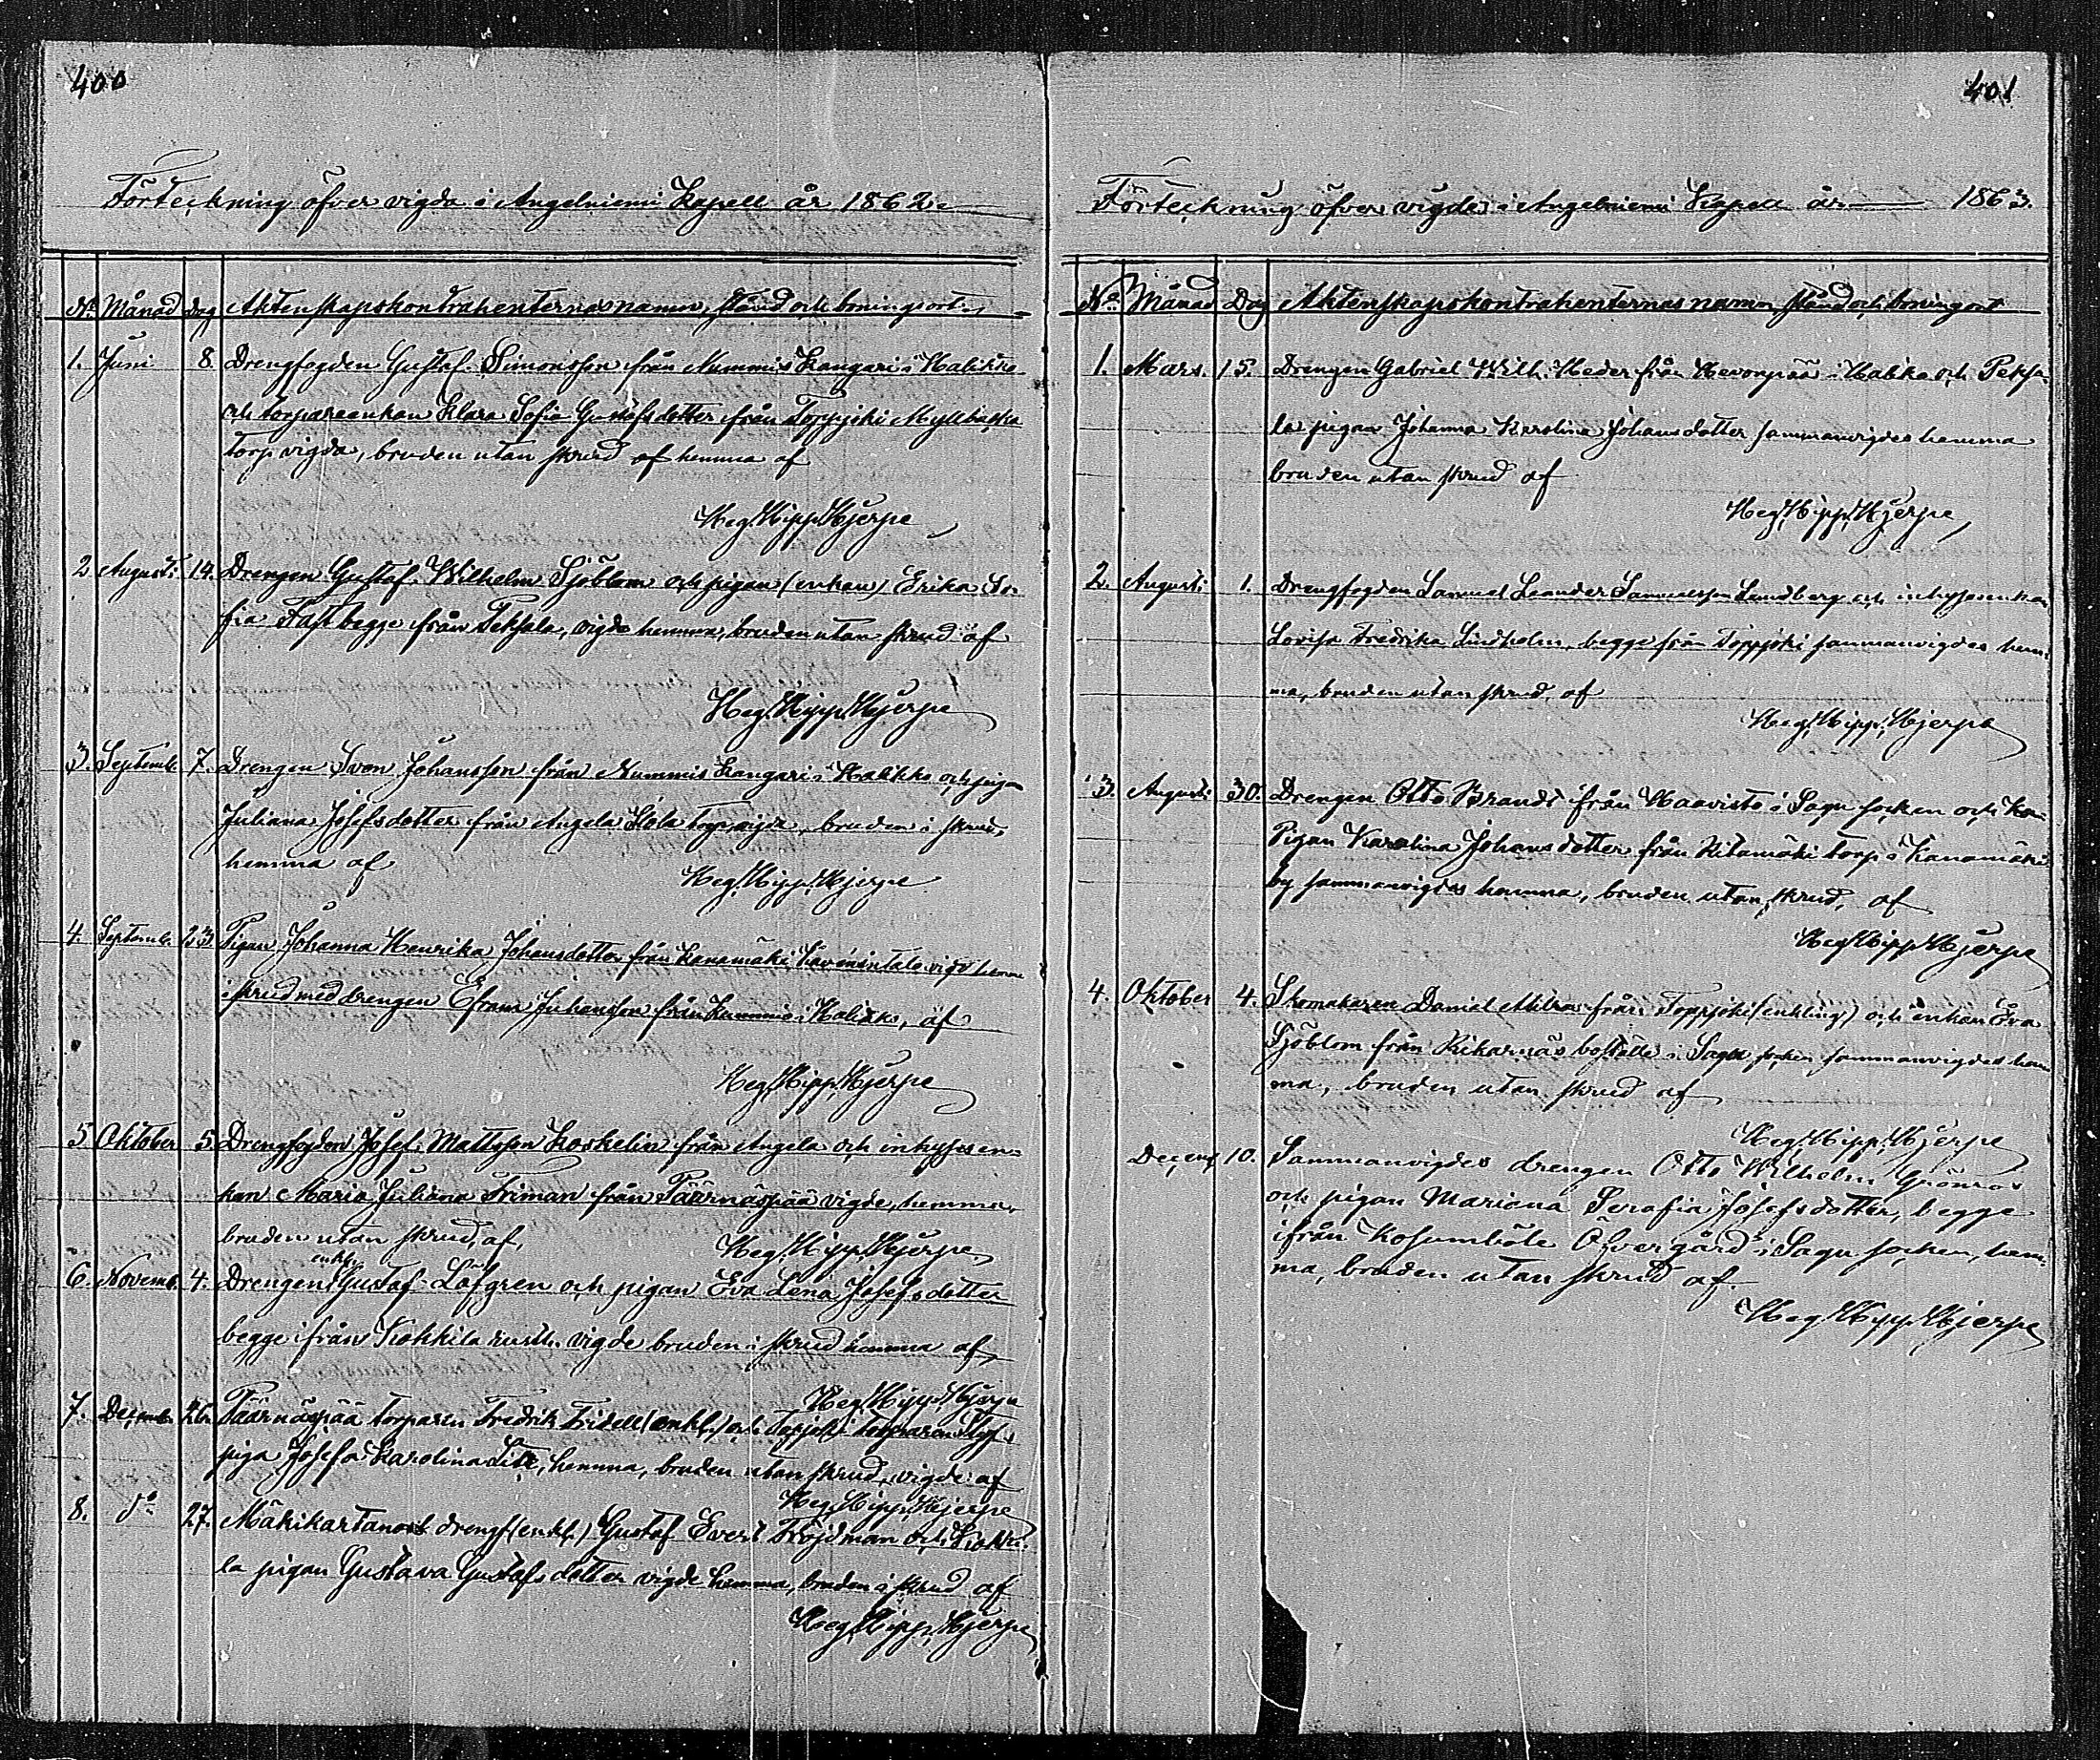 400
Förteckning öfver vigda i Angelniemi Kapell år 1862.
No Månad Dag Äktenskapskontrahenternas namn, stånd och boningsort.
1. Juni 8. Drengfogden Gustaf Simonsson från Nummis Kangari i Halikko
och torpareenkan Klara Sofia Gustafsdotter från Toppjoki Myllbacka
torp vigda, bruden utan skrud af hemma af
Heg. Hipp. Hjerpe
2 Augusti 14. Drengen Gustaf Wilhelm Sjöblom och pigan (enkan) Erika So-
fia Fast begge från Peksala, vigde hemma, bruden utan skrud af
Heg. Hipp. Hjerpe
3. Septemb. 7. Drengen Sven Johansson från Nummis Kangari i Halikko och pigan
Juliana Josefsdotter från Angela torp vigda, bruden i skrud,
hemma af
Heg. Hipp. Hjerpe
4. Septemb. 23 Pigan Johanna Henrika Johansdotter från Kanamäki vigd hemma
i skrud med drengen Efraim Juhansson från Kummis i Halikko, af
Heg. Hipp. Hjerpe
5 Oktober 5 Drengfogden Josef Mattsson Koskelin från Angela och inhyses en-
kan Maria Juliana Friman från Päärnäspää vigde, hemma,
bruden utan skrud, af,
Heg. Hipp. Hjerpe
6. Novemb. 4. Drengen enkl. Gustaf Löfgren och pigan Eva Lena Josefsdotter
begge ifrån Kokkila rusth. vigde bruden i skrud hemma af
Heg. Hipp. Hjerpe
7. Decemb. 26. Päärnäspää torparen Fredrik Fridell (enkl.) och Toppjoki torparen
piga Josefa Karolina, hemma, bruden utan skrud, vigde af
Heg. Hipp. Hjerpe
8. do 27. Mäkikartano drengf (enkl.) Gustaf Evert Fröjdman och Kokki-
la pigan Gustava Gustafsdotter vigde hemma, bruden i skrud af
Heg. Hipp. Hjerpe
401
Förteckning öfver vigde i Angelniemi Kapell år 1863.
No Månad Dag Äktenskapskontrahenternas namn, stånd och boningsort
1. Mars. 15. Drengen Gabriel Wilh. Heder från Hevonpää i Halikko och Peksa-
la pigan Johanna Karolina Johansdotter sammanvigdes hemma
bruden utan skrud af
Heg. Hipp. Hjerpe
2. Augusti 1. Drengfogden Samuel Leander Samuelsson Lundberg och inhysesenkan
Lovisa Fredrika Lindholm, begge från Toppjoki sammanvigdes hem-
ma, bruden utan skrud, af
Heg. Hipp. Hjerpe
3. Augusti 30. Drengen Otto Brandt från Haavisto i Sagu socken och
Pigan Karolina Johansdotter från Ritamäki torp i Kanamäki
by sammanvigdes hemma, bruden utan skrud, af
Heg. Hipp. Hjerpe
4. Oktober 4. Skomakaren Daniel från Toppjoki (enkling) och enkan Eva
Sjöblom från Rikarnäs boställe i Sagu socken sammanvigdes hem
ma, bruden utan skrud af
Heg. Hipp. Hjerpe
Decemb 10. Sammanvigdes drengen Otto Wilhelm Grönros
och pigan Mariana Serafia Josefsdotter, begge
ifrån Kosumböle Öfvergård i Sagu socken, hem-
ma, bruden utan skrud af
Heg. Hipp. Hjerpe